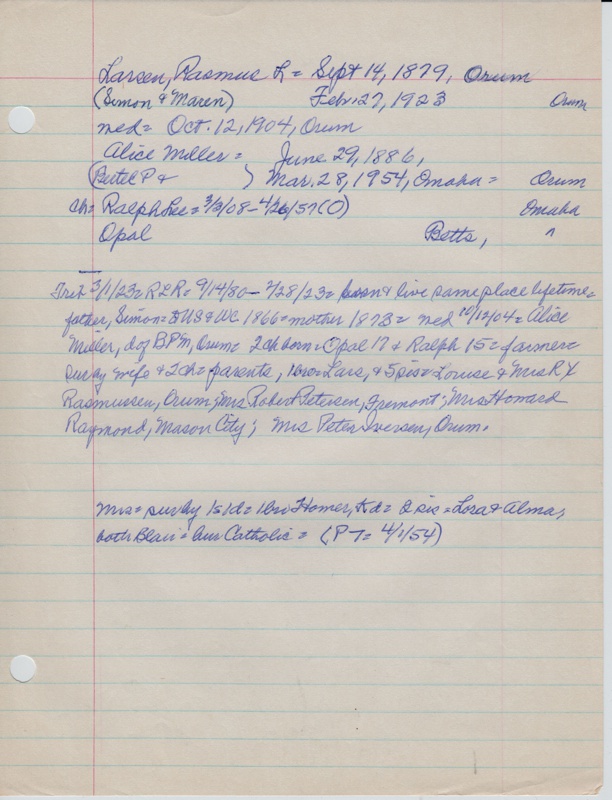 Larsen, Rasmus L = Sept 14, 1879, Orum
(Simon & Maren) Feb. 27, 1923 Orum
med = Oct. 12, 1904, Orum
Alice Miller = June 29, 1886,
(Bertel P & ) Mar. 28, 1954, Omaha = Orum
ch = Ralph Lee = 3/3/08 - 4/26/57 (O) Omaha
Opal Betts, ^
3/1/23 = RLR = 9/14/80 - 2/28/23 = born & live same place lifetime =
father, Simon = US & WC 1866 = mother 1873 = med 10/12/04 = Alice
Miller, d of BPM, Orum = 2 ch born = Opal 17 & Ralph 15 = farmer =
surby wife & 2 ch = parents, 1 bro = Lars, & 5 sis = Louise & Mrs R X
Rasmussen, Orum; Mrs Robert Petersen, Fremont; Mrs Howard
Raymond, Mason City; Mrs Peter Iversen, Orum.
Mrs = surby 1s 1d = 1 bro Homer, = 2 sis = Lora & Alma,
both Blair = bur Catholic = (P T = 4/1/54)